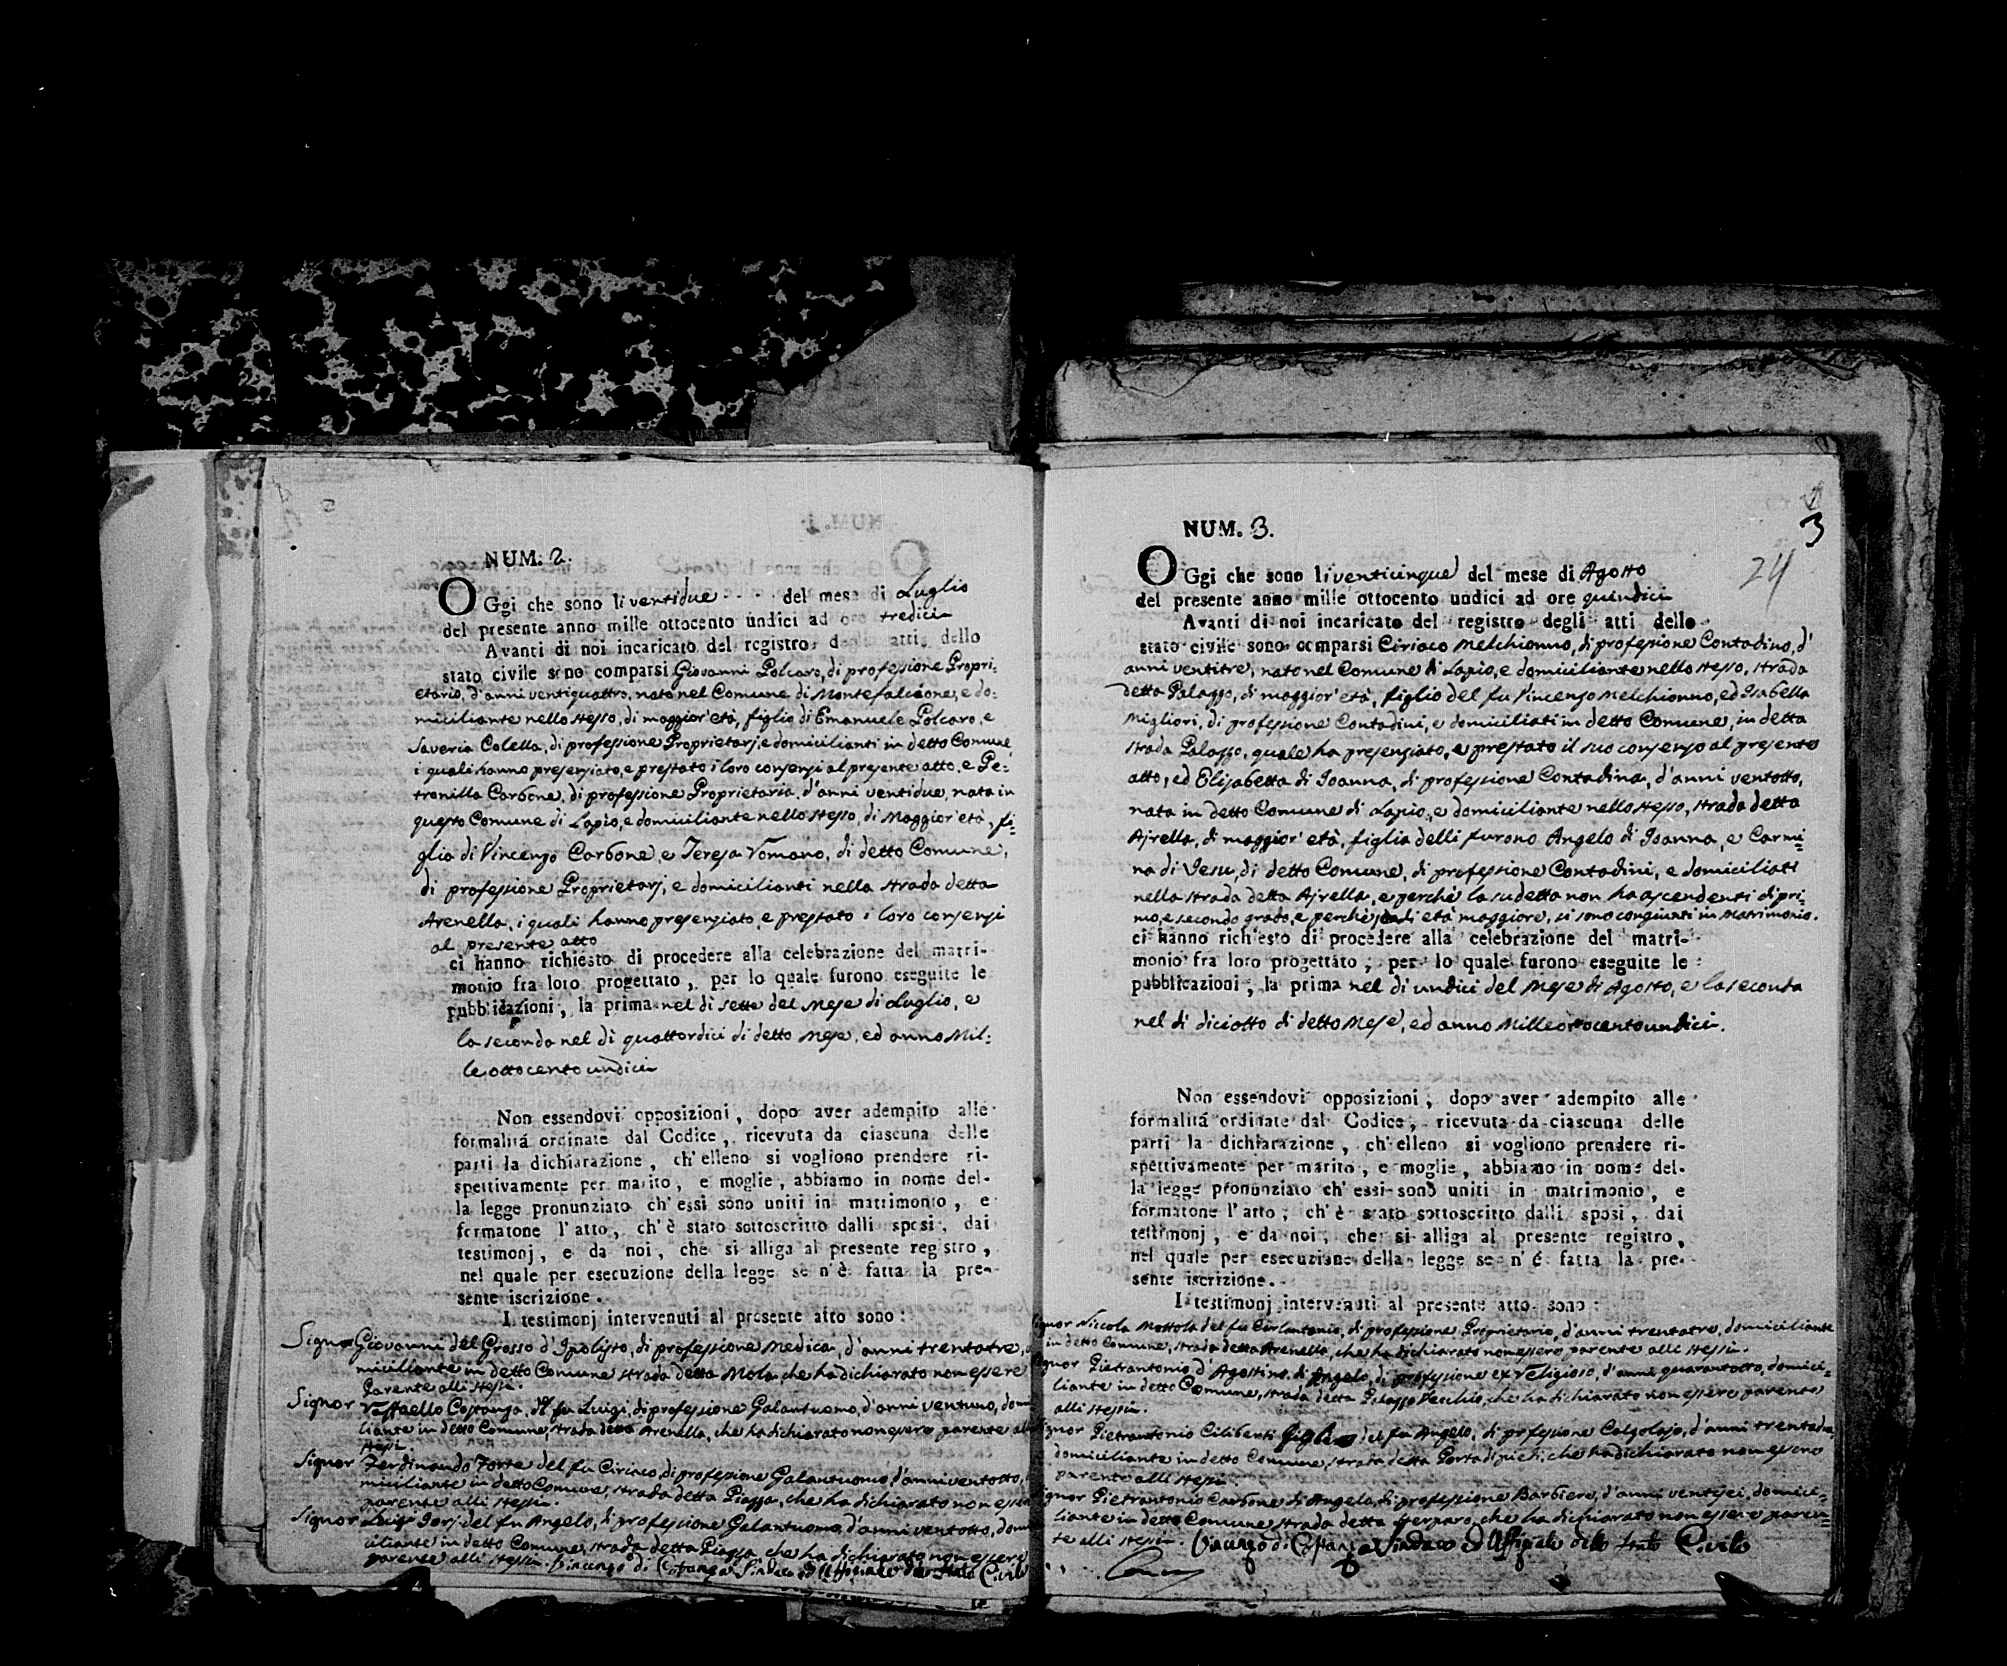 NUM. 2.
OGgi che sono li ventidue del mese di Luglio
del presente anno mille ottocento undici ad ore tredici
Avanti di noi incaricato del registro degli atti dello
stato civile sono comparsi Giovanni Polcaro, di professione Proprie-
tario, d'anni ventiquattro, nato nel Comune di Montefalcione, e do-
miciliante nello stesso, di maggior' età, figlio di Emanuele Polcaro, e
Saveria Colella, di professione Proprietarj, e domicilianti in detto Comune
i quali hanno presenziato, e prestato i loro consensi al presente atto, e Pe-
tronilla Carbone, di professione Proprietaria, d'anni ventidue, nata in
questo Comune di Lapio, e domiciliante nello stesso, di Maggior età, fi-
glia di Vincenzo Carbone, e Teresa Romano, di detto Comune,
di professione Proprietarj, e domicilianti nella strada detta
Arenella, i quali hanno presenziato, e prestato i loro consensi
al presente atto
ci hanno richiesto di procedere alla celebrazione del matri-
monio fra loro progettato, per lo quale furono eseguite le
pubblicazioni, la prima nel di sette del Mese di Luglio, e
la seconda nel dì quattordici di detto Mese, ed anno Mil-
le ottocento undici
Non essendovi opposizioni, dopo aver adempito alle
formalitá ordinate dal Codice, ricevuta da ciascuna delle
parti la dichiarazione, ch'elleno si vogliono prendere ri-
spettivamente per marito, e moglie, abbiamo in nome del-
la legge pronunziato ch'essi sono uniti in matrimonio, e
formatone l'atto, ch'è stato sottoscritto dalli sposi, dai
testimonj, e da noi, che si alliga al presente registro,
nel quale per esecuzione della legge se n'è fatta la pre-
sente iscrizione.
I testimonj intervenuti al presente atto sono:
Signor Giovanni del Grosso d'Ipolisto, di professione Medico, d'anni trentatre, do
miciliante in detto Comune strada detta Mola, che ha dichiarato non essere
Parente alli stessi.
Signor Raffaello Costanza, del fu Luigi, di professione Galantuomo, d'anni ventuno, domi
liante in detto Comune, strada detta Arenella, che ha dichiarato non essere parente alli
stessi.
Signor Ferdinando Forte del fu Ciriaco, di professione Galantuomo, d'anni ventotto,
miciliante in detto Comune, strada detta Piazza, che ha dichiarato non essere
parente alli stessi.
Signor Luigi del fu Angelo, di professione Galantuomo, d'anni ventotto, domi
ciliante in detto Comune, strada detta Piazza, che ha dichiarato non essere
parente alli stessi. Vincenzo di Costanza Sindaco ed Uffiziale dello Stato Civile
3
24
NUM. 3.
OGgi che sono li venticinque del mese di Agosto
del presente anno mille ottocento undici ad ore quindici
Avanti di noi incaricato del registro degli atti dello
stato civile sono comparsi Ciriaco Melchionno, di professione Contadino, d'
anni ventitre, nato nel Comune di Lapio, e domiciliante nello stesso, strada
detta Palazzo, di maggior' età, figlio del fu Vincenzo Melchionno, ed Isabella
Migliori, di professione Contadini, e domiciliati in detto Comune, in detta
strada Palazzo, quale ha presenziato, e prestato il suo consenso al presente
atto, ed Elisabetta di Joanna, di professione Contadina, d'anni ventotto,
nata in detto Comune di Lapio, e domiciliante nello stesso, strada detta
Ajrella, di maggior' età, figlia delli furono Angelo di Joanna, e Carmi-
na di Jesu, di detto Comune, di professione Contadini, e domiciliati
nella strada detta Ajrella, e perchè la sudetta non ha ascendenti di pri-
mo, e secondo grado, e perchè di età maggiore, si sono congiunti in Matrimonio.
ci hanno rich'esto di procedere alla celebrazione del matri-
monio fra loro progettato, per lo quale furono eseguite le
pubblicazioni, la prima nel di undici del Mese di Agosto, e la seconda
nel di diciotto di detto Mese, ed anno Milleottocentoundici.
Non essendovi opposizioni, dopo aver adempito alle
formalitá ordinate dal Codice, ricevuta da ciascuna delle
parti la dichiarazione, ch'elleno si vogliono prendere ri-
spettivamente per marito, e moglie, abbiamo in nome del-
la legge pronunziato ch'essi sono uniti in matrimonio, e
formatone l'atto, ch'è stato sottoscritto dalli sposi, dai
testimonj, e da noi, che si alliga al presente registro,
nel quale per esecuzione della legge se n'é fatta la pre-
sente iscrizione.
I testimonj intervenuti al presente atto sono:
Signor Niccola Mottola del fu Carlantonio, di professione Proprietario, d'anni trentatre, domiciliante
in detto Comune, strada detta Arenella, che ha dichiarato non essere parente alli stessi.
Signor Pietrantonio d'Agostino di Angelo, di professione ex Religioso, d'anni quarantotto, domici-
liante in detto Comune, strada detta Palazzo Vecchio, che ha dichiarato non essere parente
alli stessi.
Signor Pietrantonio Ciliberti del fu Angelo, di professione Calzolajo, d'anni
domiciliante in detto Comune, strada detta Porta di piedi, che ha dichiarato non essere
parente alli stessi.
Signor Pietrantonio Carbone di Angelo, di professione Barbiere, d'anni ventisei, domici-
liante in detto Comune strada detta che ha dichiarato non essere paren-
te alli stessi. Vincenzo di Costanza Sindaco ed Uffiziale dello Stato Civile